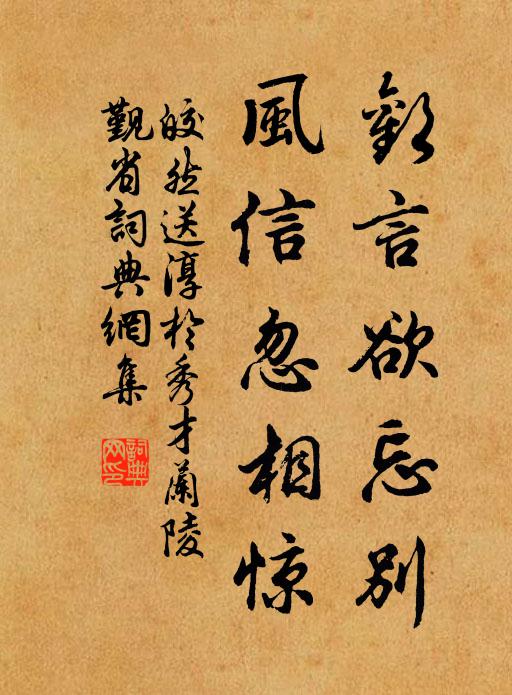 歡言欲忘別
風信忽相惊
皎然送淳於秀才蘭陵
觀省詞典網集
詞典网印